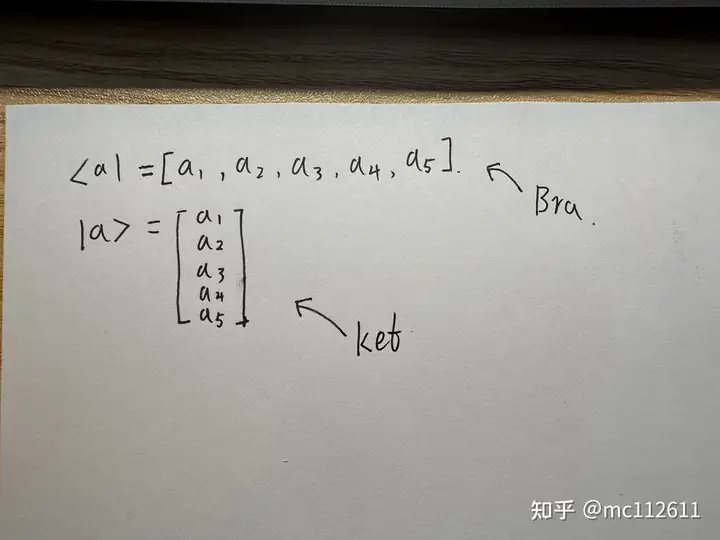 <a| = [a₁, a₂, a₃, a₄, a₅]. Bra.
|a> = [a₁
a₂
a₃
a₄
a₅]
ket
知乎 @mc112611